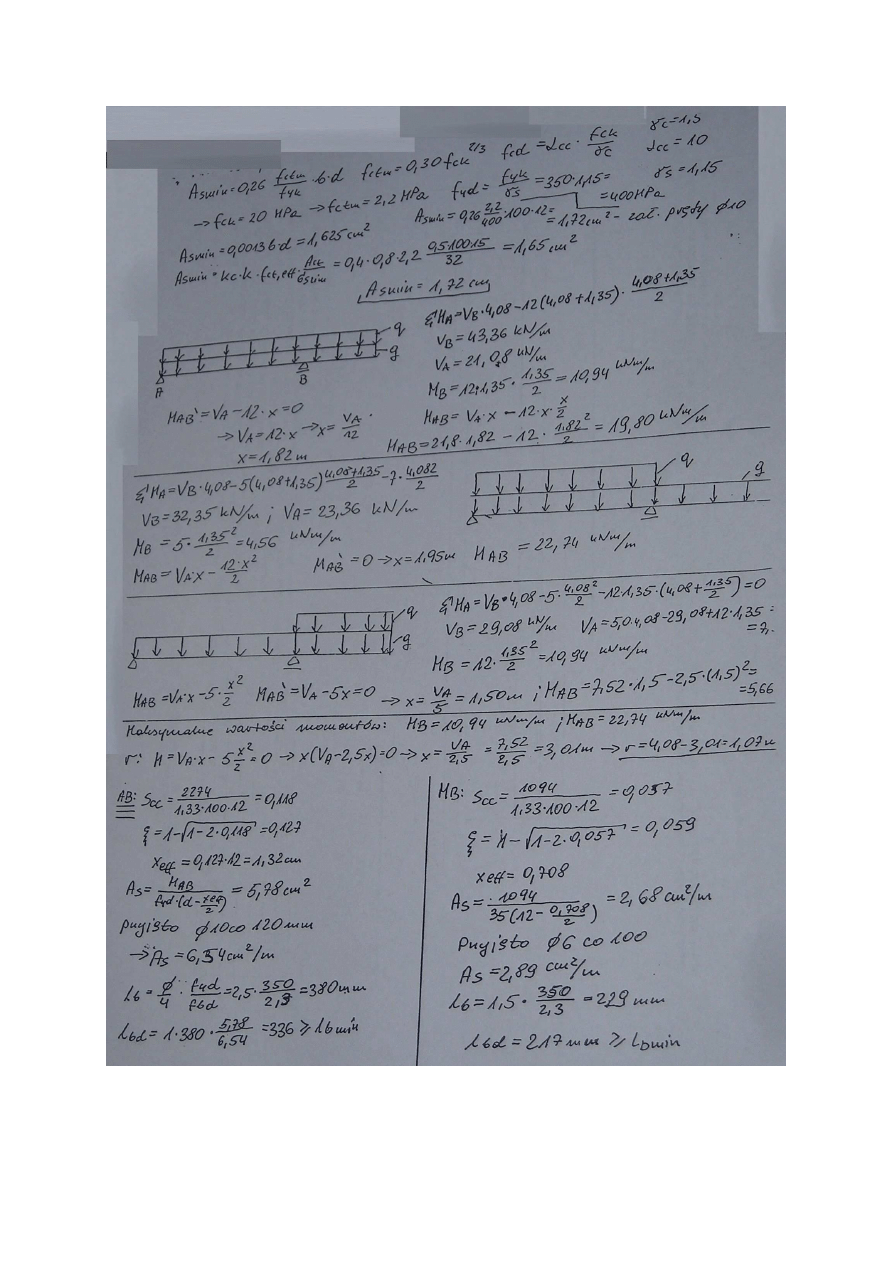 Asmin=0,26 fctm/fyk ·b·d fctm=0,30 fck^2/3 fcd=αcc · fck/γc γc=1,5
αcc=10
→fck=20 MPa →fctm=2,2 MPa fyd=fyk/γs=350·1,15= γs=1,15
=400MPa
Asmin=0,0013b·d=1,625cm² Asmin=0,26 2,2/400 ·100·12= =1,72cm² - zał. pręty φ10
Asmin=kc·k·fct,eff· Act/σslim =0,4·0,8·2,2 0,5·100·15/32 =1,65cm²
Asmin=1,72cm
ΣMA=VB·4,08-12(4,08+1,35)· 4,08+1,35/2
VB=43,36 kN/m
VA=21,0,8 kN/m
MB=12·1,35· 1,35/2=10,94 kNm/m
q
g
A
B
MAB'=VA-12·x=0
→VA=12·x→x=VA/12
x=1,82m
MAB=VA·x-12·x·x/2
MAB=21,8·1,82-12· 1,82²/2=19,80 kNm/m
ΣMA=VB·4,08-5(4,08+1,35) 4,08+1,35/2 -7· 4,082/2
VB=32,35kN/m ; VA=23,36 kN/m
MB=5· 1,35²/2=4,56 kNm/m
MAB=VA·x- 12·x²/2 MAB'=0→x=1,95m MAB=22,74 kNm/m
q
g
ΣMA=VB·4,08-5· 4,08²/2 -12·1,35·(4,08+ 1,35/2)=0
VB=29,08kN/m VA=5,0·4,08-29,08+12·1,35=
=7,
MB=12· 1,35²/2=10,94 kNm/m
q
g
MAB=VA·x-5· x²/2 MAB'=VA-5x=0 →x=VA/5=1,50m ; MAB=7,52·1,5-2,5·(1,5)²=
=5,66
Maksymalne wartości momentów: MB=10,94 kNm/m ; MAB=22,74 kNm/m
r: M=VA·x-5 x²/2=0→x(VA-2,5x)=0→x=VA/2,5=7,52/2,5=3,01m→r=4,08-3,01=1,07m
AB: Scc=2274/1,33·100·12=0,118
ξ=1-√1-2·0,118=0,127
xeff=0,127·12=1,32cm
As=MAB/fyd·(d-xeff/2)=5,78cm²
Przyjęto φ10co120mm
→As=6,54cm²/m
lb=φ/4 · fyd/fbd=2,5· 350/2,3=380mm
lbd=1·380· 5,78/6,54=336≥lbmin
MB: Scc=1094/1,33·100·12=0,057
ξ=1-√1-2·0,057=0,059
xeff=0,708
As=1094/35(12- 0,708/2)=2,68cm²/m
Przyjęto φ6 co 100
As=2,89 cm²/m
lb=1,5· 350/2,3=229 mm
lbd=217mm≥lbmin